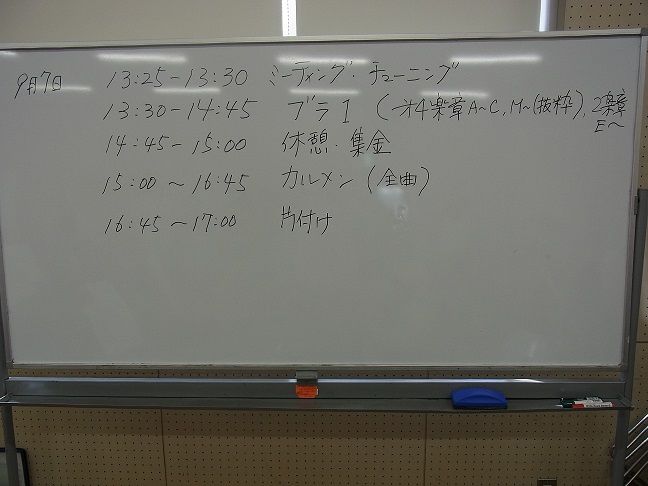 9月7日 13:25-13:30 ミーティング・チューニング
13:30-14:45 ブラ1 (第4楽章A~C, M~(抜粋), 2楽章
E~
14:45-15:00 休憩・集金
15:00~16:45 カルメン(全曲)
16:45~17:00 片付け